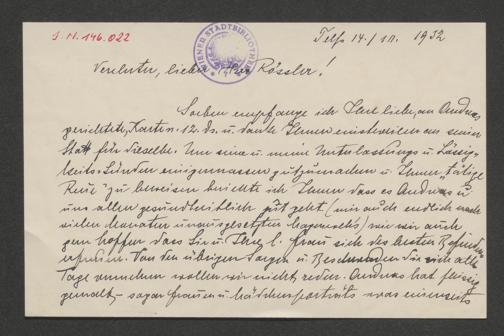 J. N. 146.022
WIENER STADTBIBLIOTHEK
Telfs 14./ 12. 1932
Verehrter, lieber Herr Rössler!
Soeben empfange ich Ihre liebe, an Andreas
gerichtete, Karte v. 12. ds. u. danke Ihnen einstweilen an seiner
statt für dieselbe. Um seine u. meine Unterlassungs u. Lässig-
keits-Sünden einigermassen gutzumachen u. Ihnen „tätige
Reue" zu beweisen berichte ich Ihnen dass es Andreas u.
uns allen gesundheitlich gut geht (mir auch endlich nach
vielen Monaten unausgesetzten) wie wir auch
gern hoffen dass Sie u. Ihre l. Frau sich des besten Befindens
erfreuen. Von den übrigen Sorgen u. die sich alle
Tage vermehren wollen wir nicht reden. Andreas hat fleissig
gemalt – sogar Frauen u. Mädchenporträts was einerseits